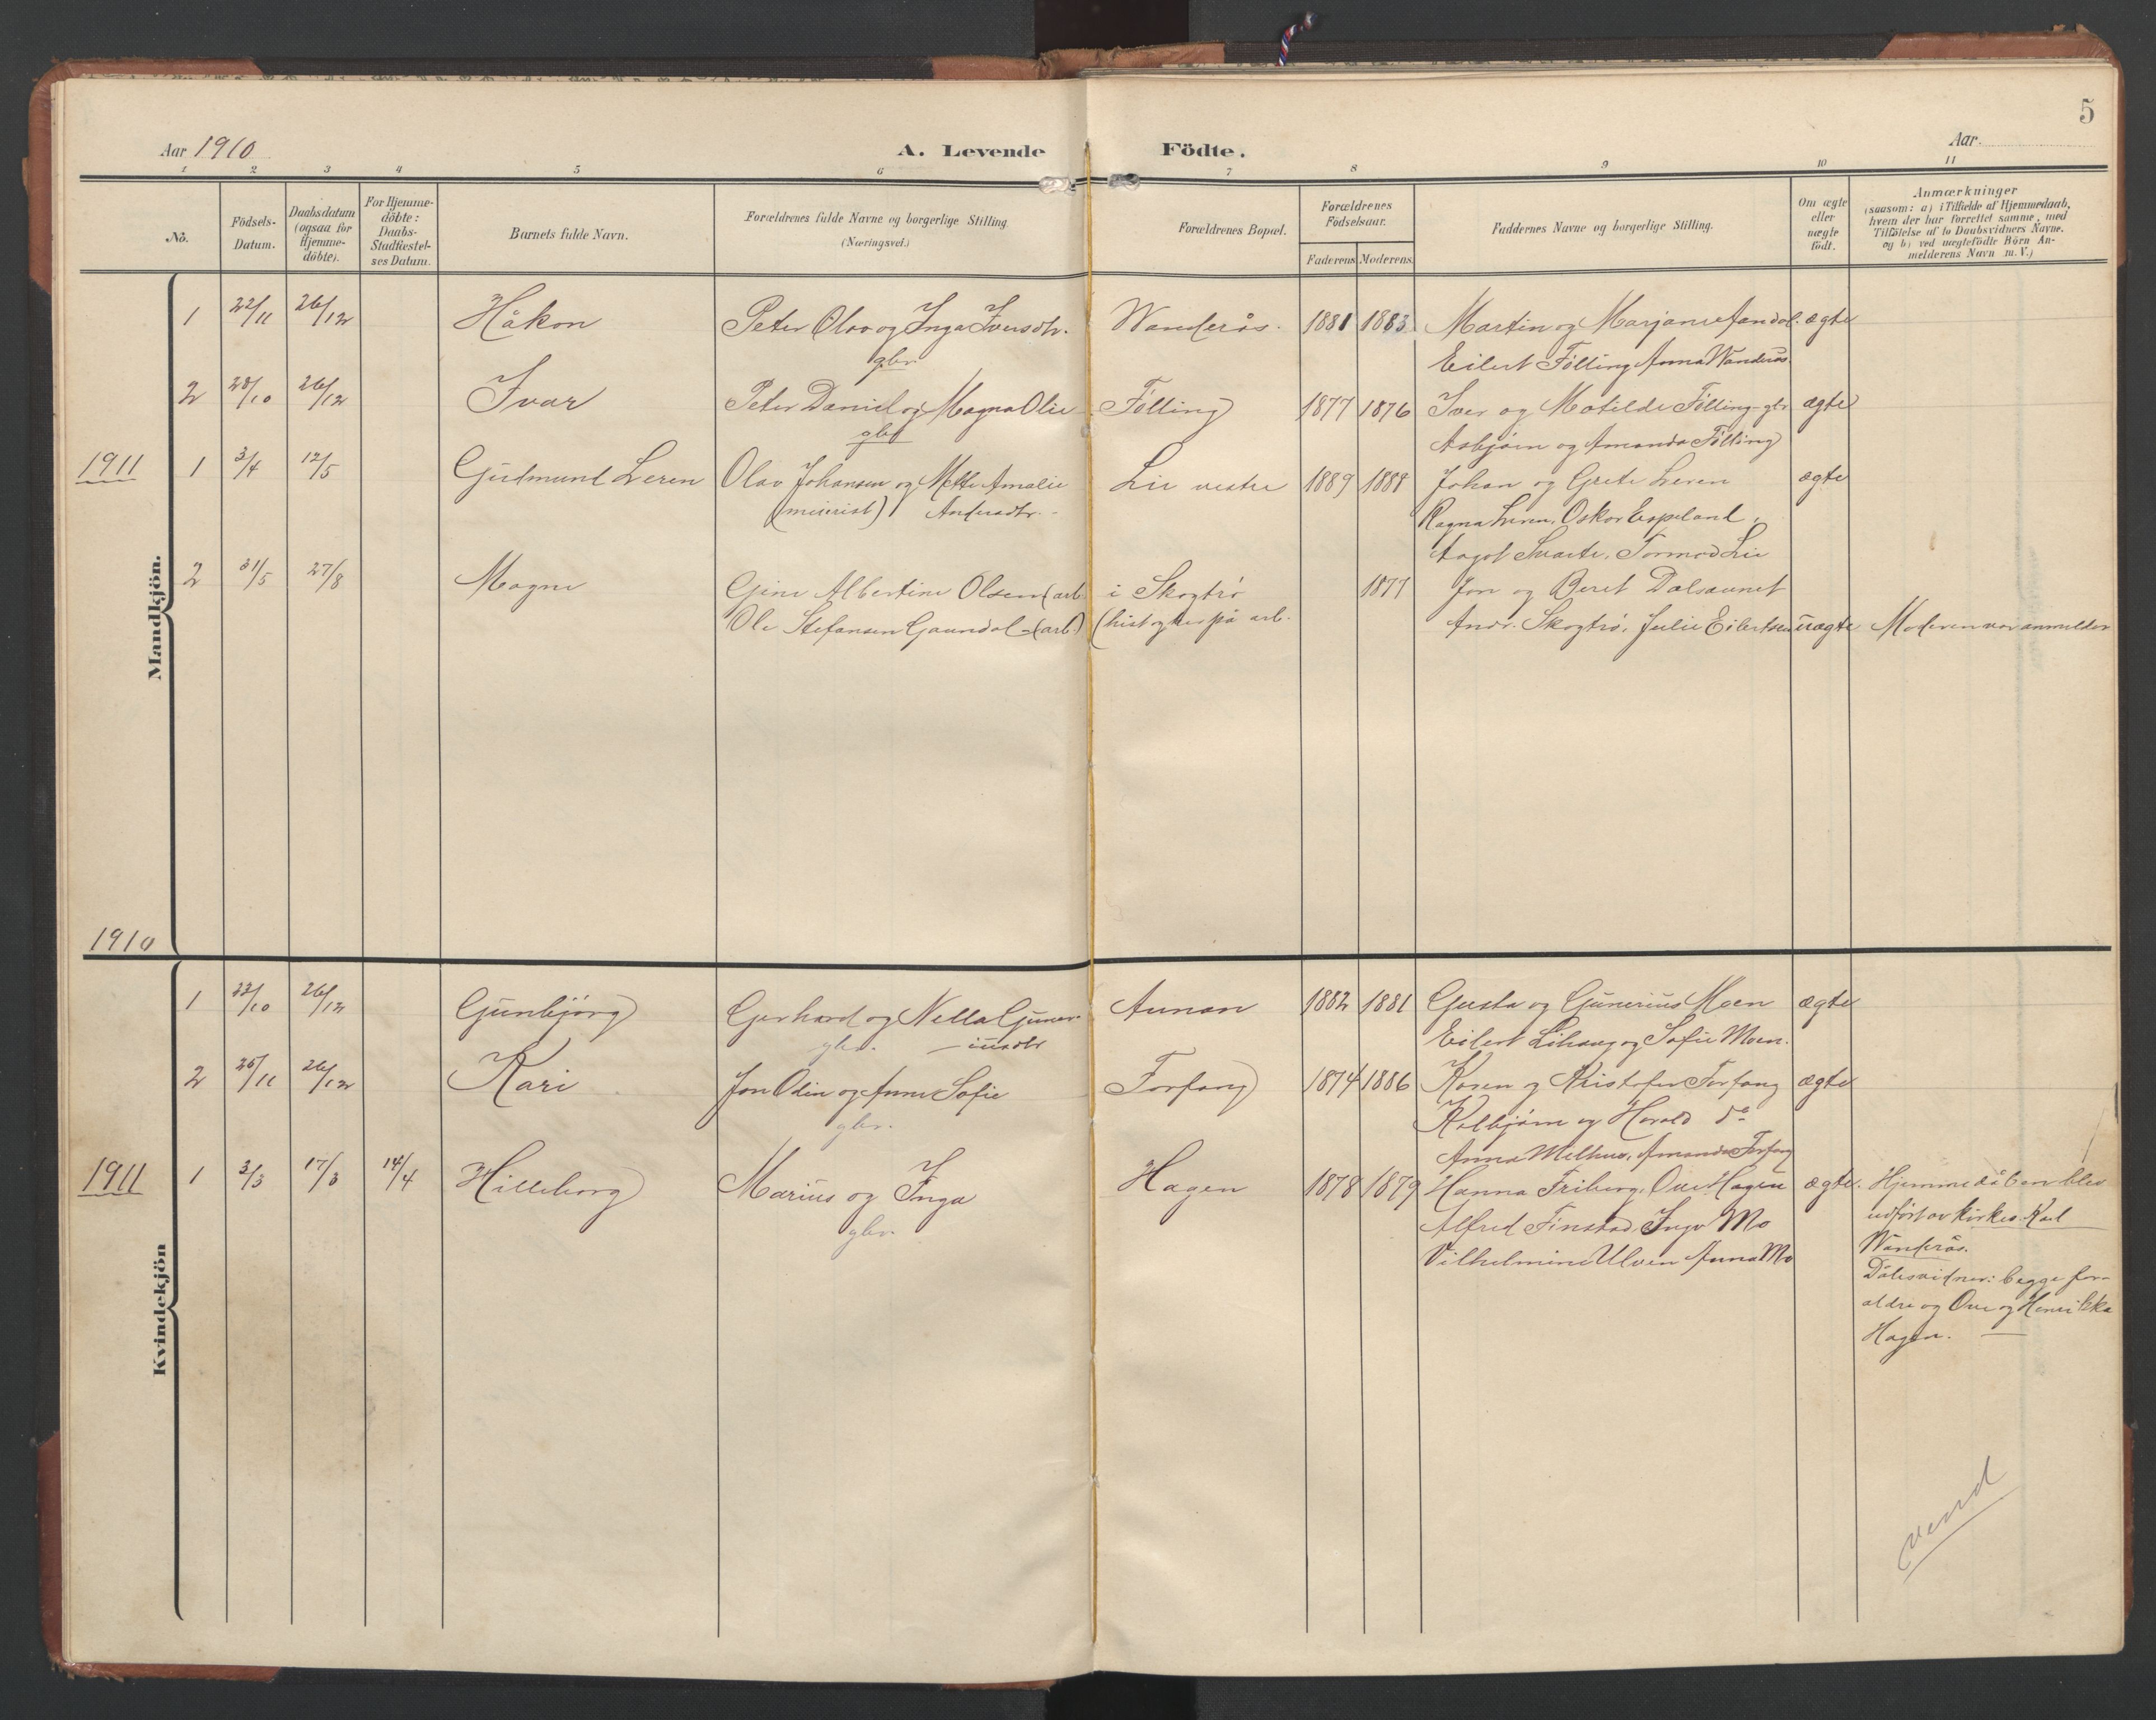 5
Aar 1910
A. Levende Födte.
Aar.
1 2 3 4 5 6 7 8 9 10 11
No.
Födsels-
Datum.
Daabsdatum
(ogsaa for
Hjemme-
döbte).
For Hjemme-
döbte:
Daabs-
Stadfæstel-
ses Datum.
Barnets fulde Navn.
Forældrenes fulde Navne og borgerlige Stilling
(Næringsvei.)
Forældrenes Bopæl.
Forældrenes
Födselsaar.
Faderens Moderens
Faddernes Navne og borgerlige Stilling.
Om ægte
eller
uægte
födt.
Anmærkninger
(saasom: a) i Tilfælde af Hjemmedaab,
hvem der har forrettet samme, med
Tilföielse af to Daabsvidners Navne.
og b) ved uægtefödte Börn An-
melderens Navn m.V.)
Mandkjön.
1 22/11 26/12 Håkon Peter Olav og Inga Iversdtr. Wanderås. 1881 1883 Martin og Marjane ægte
gbr. Eilert Følling Anna Wanderås.
2 28/10 26/12 Ivar Peter Daniel og Magna Olie Følling 1877 1876 Iver og Matilde Følling gbr ægte
gbr Asbjørn og Amanda Følling
1911 1 3/4 12/5 Gudmund Leren Olav Johansen og Mette Amalie Lie vestre 1889 1888 Johan og Grete Leren ægte
(meierist) Andersdtr. Ragna Leren, Oskar Espeland,
Aagot Svarte, Tormod Lie
2 31/5 27/8 Magne Gine Albertine Olsen (arb. i Skogtrø 1877 Jon og Beret Dalsaunet
Ole Stefansen Gaundal (arb.) (hist og her på arb. Andr. Skogtrø, Julie Eilertsen uægte Moderen var anmelder
1910
Kvindekjön
1 22/10 26/12 Gunbjørg Gerhard og Nella Guner- Aunan 1882 1881 Gusta og Gunerius Moen ægte
gbr. - iusdtr Eilert Lihaug og Sofie Moen.
2 25/11 26/12 Kari Jon Odin og Anna Sofie Forfang 1874 1886 Karen og Kristofer Forfang ægte
gbr. Kolbjørn og Harald do
Anna Melhus, Amanda Forfang
1911 1 3/3 17/3 14/4 Hilleborg Marius og Inga Hagen 1878 1879 Hanna Friberg, Ove Hagen ægte. Hjemmedåben blev
gbr. Alfred Finstad, Inga Mo udført av kirkes. Karl
Vilhelmine Ulven Anna Mo Wanderås.
Dåbsvidner: begge for-
ældre og Ove og Henrikka
Hagen.
vend